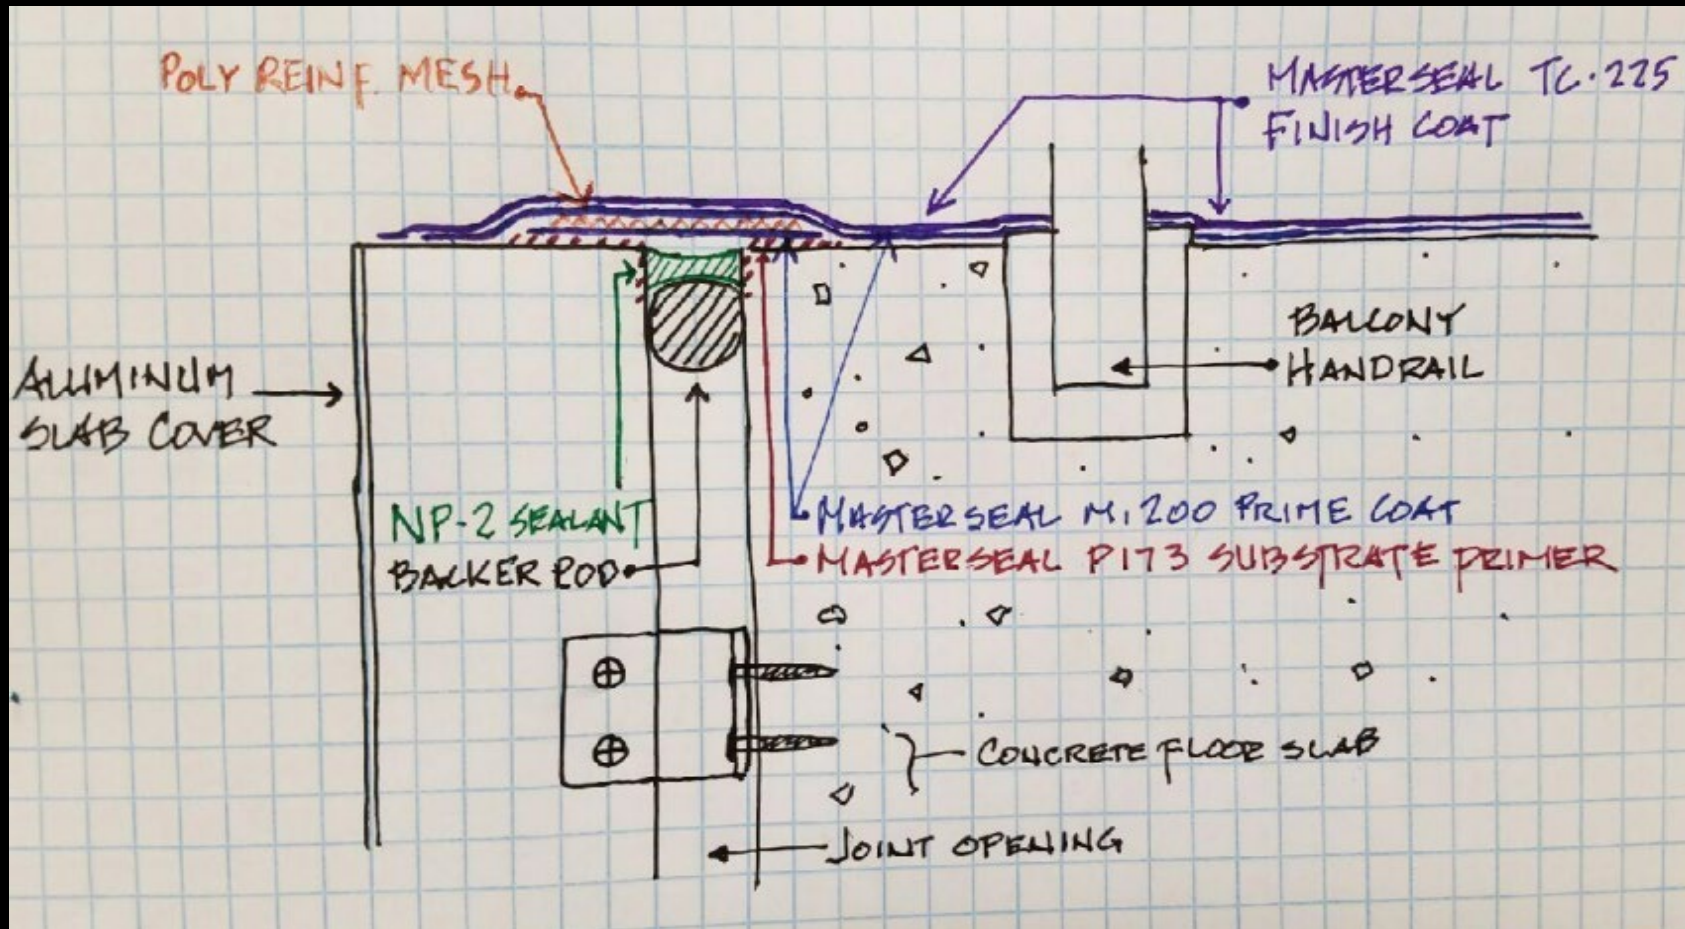 POLY REINF. MESH
MASTERSEAL TC·225
FINISH COAT
BALCONY
HANDRAIL
ALUMINUM
SLAB COVER
NP-2 SEALANT
BACKER ROD
MASTERSEAL M.200 PRIME COAT
MASTERSEAL P173 SUBSTRATE PRIMER
CONCRETE FLOOR SLAB
JOINT OPENING